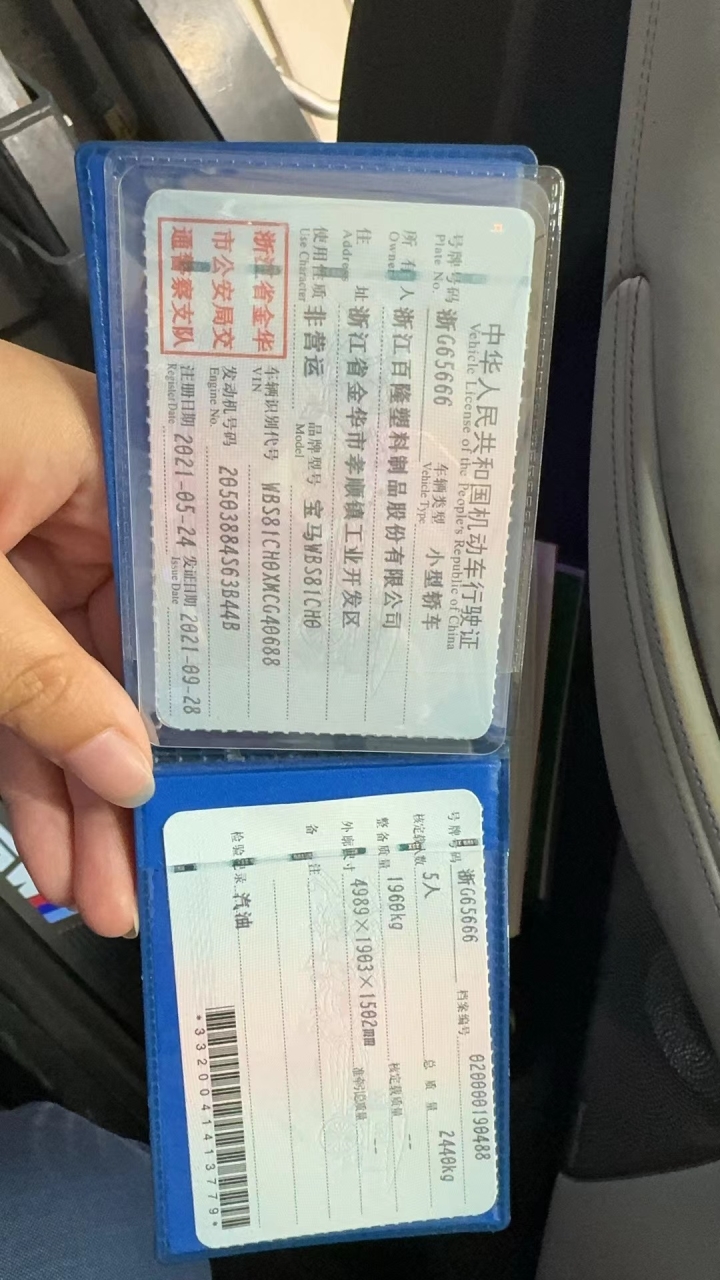 中华人民共和国机动车行驶证
Vehicle License of the People's Republic of China
号牌号码 浙G65666 车辆类型 小型轿车
Plate No. Vehicle Type
所有人 浙江百隆塑料制品股份有限公司
Owner
住址 浙江省金华市孝顺镇工业开发区
Address
使用性质 非营运 品牌型号 宝马WBS81CH0
Use Character Model
浙江省金华
市公安局交
通警察支队
车辆识别代号 WBS81CH0XMCG40688
VIN
发动机号码 20503884S63B44B
Engine No.
注册日期 2021-05-24 发证日期 2021-09-28
Register Date Issue Date
号牌号码 浙G65666 档案编号 020000190488
核定载人数 5人 总质量 2440kg
整备质量 1960kg 核定载质量 --
外廓尺寸 4989×1903×1502mm 准牵引总质量 --
备注
检验记录 汽油
*3320041413779*